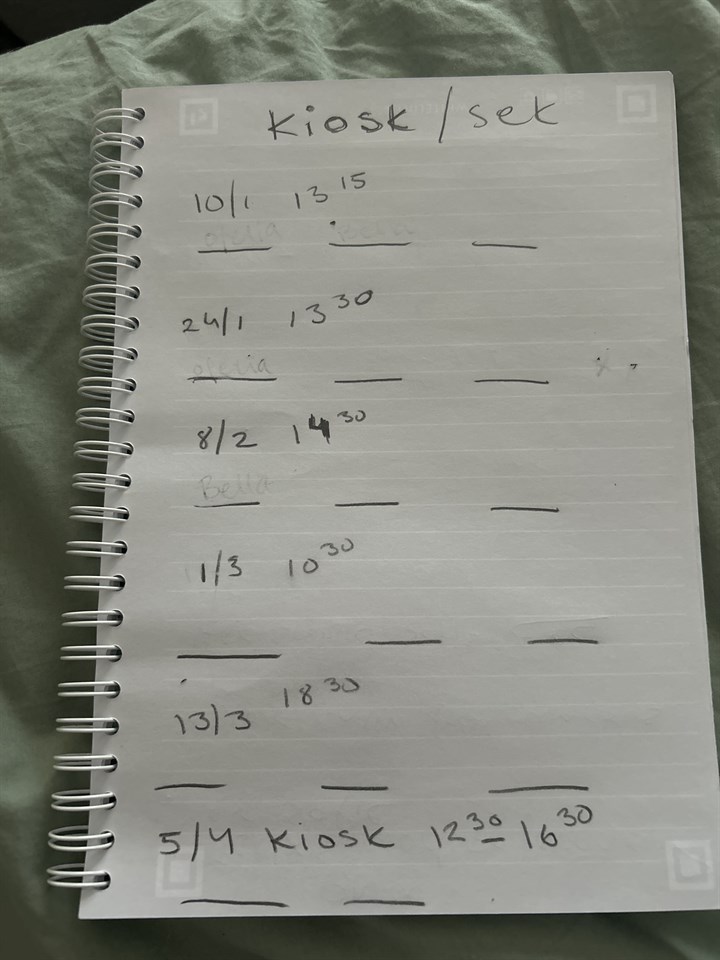 Kiosk / sek
10/1 13 15
Ofelia Bella
24/1 13 30
Ofelia
8/2 14 30
Bella
1/3 10 30
13/3 18 30
5/4 Kiosk 12 30 - 16 30